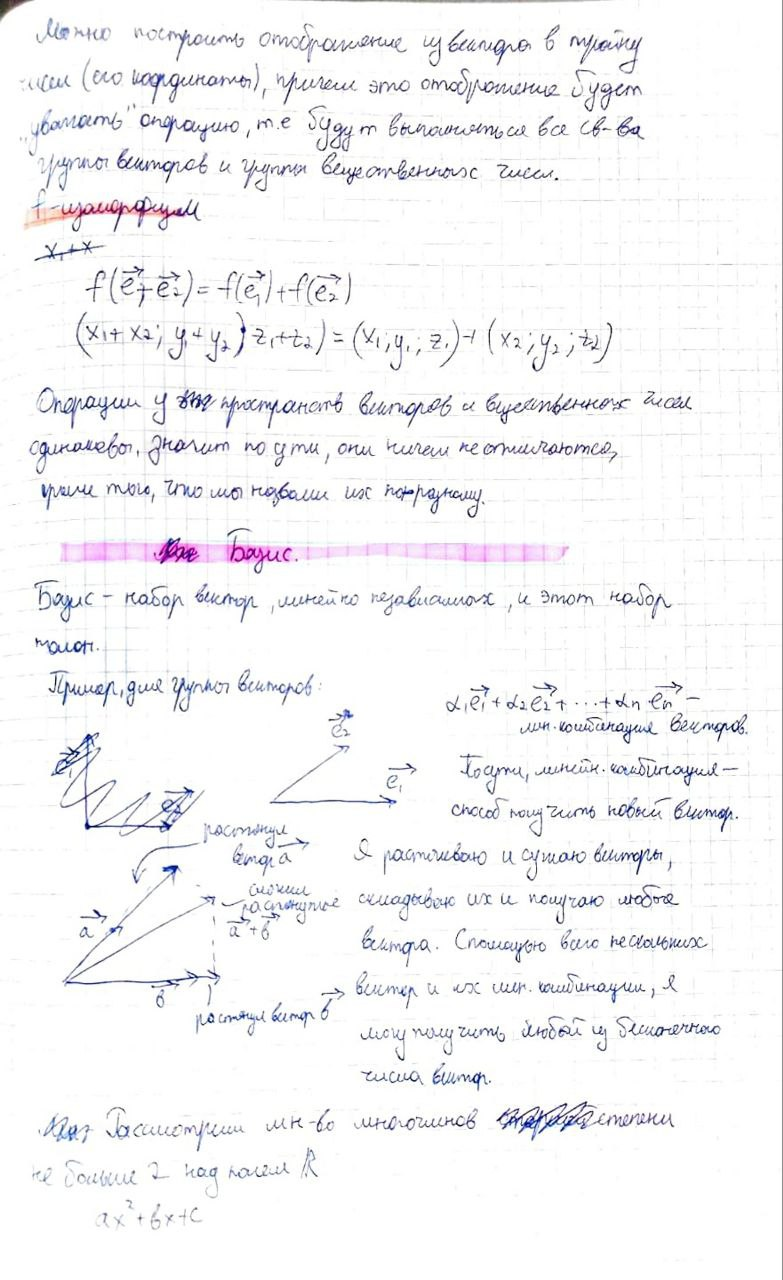 Можно построить отображение из вектора в тройку
чисел (его координаты), причем это отображение будет
"уважать" операцию, т.е будут выполняться все св-ва
группы векторов и группы вещественных чисел.
f-изоморфизм
x₁+x
f(e₁+e₂) = f(e₁)+f(e₂)
(x₁+x₂; y₁+y₂; z₁+z₂) = (x₁;y₁;z₁)+(x₂;y₂;z₂)
Операции у пространств векторов и вещественных чисел
одинаковы, значит по сути, они ничем не отличаются,
кроме того, что мы назвали их по-разному.
Базис.
Базис – набор вектор, линейно независимых, и этот набор
полон.
Пример, для группы векторов:
α₁e₁+α₂e₂+⋯+αn en –
лин.комбинация векторов.
e₂
e₁
По сути, линейн. комбинация –
способ получить новый вектор.
растянул
вектор a
сложил
растянутые
a+b
a
b
растянул вектор b
Я растягиваю и сужаю векторы,
складываю их и получаю любые
вектора. С помощью всего нескольких
вектор и их лин. комбинации, я
могу получить любой из бесконечного
числа вектор.
Рассмотрим мн-во многочленов степени
не больше 2 над полем ℝ
ax²+bx+c